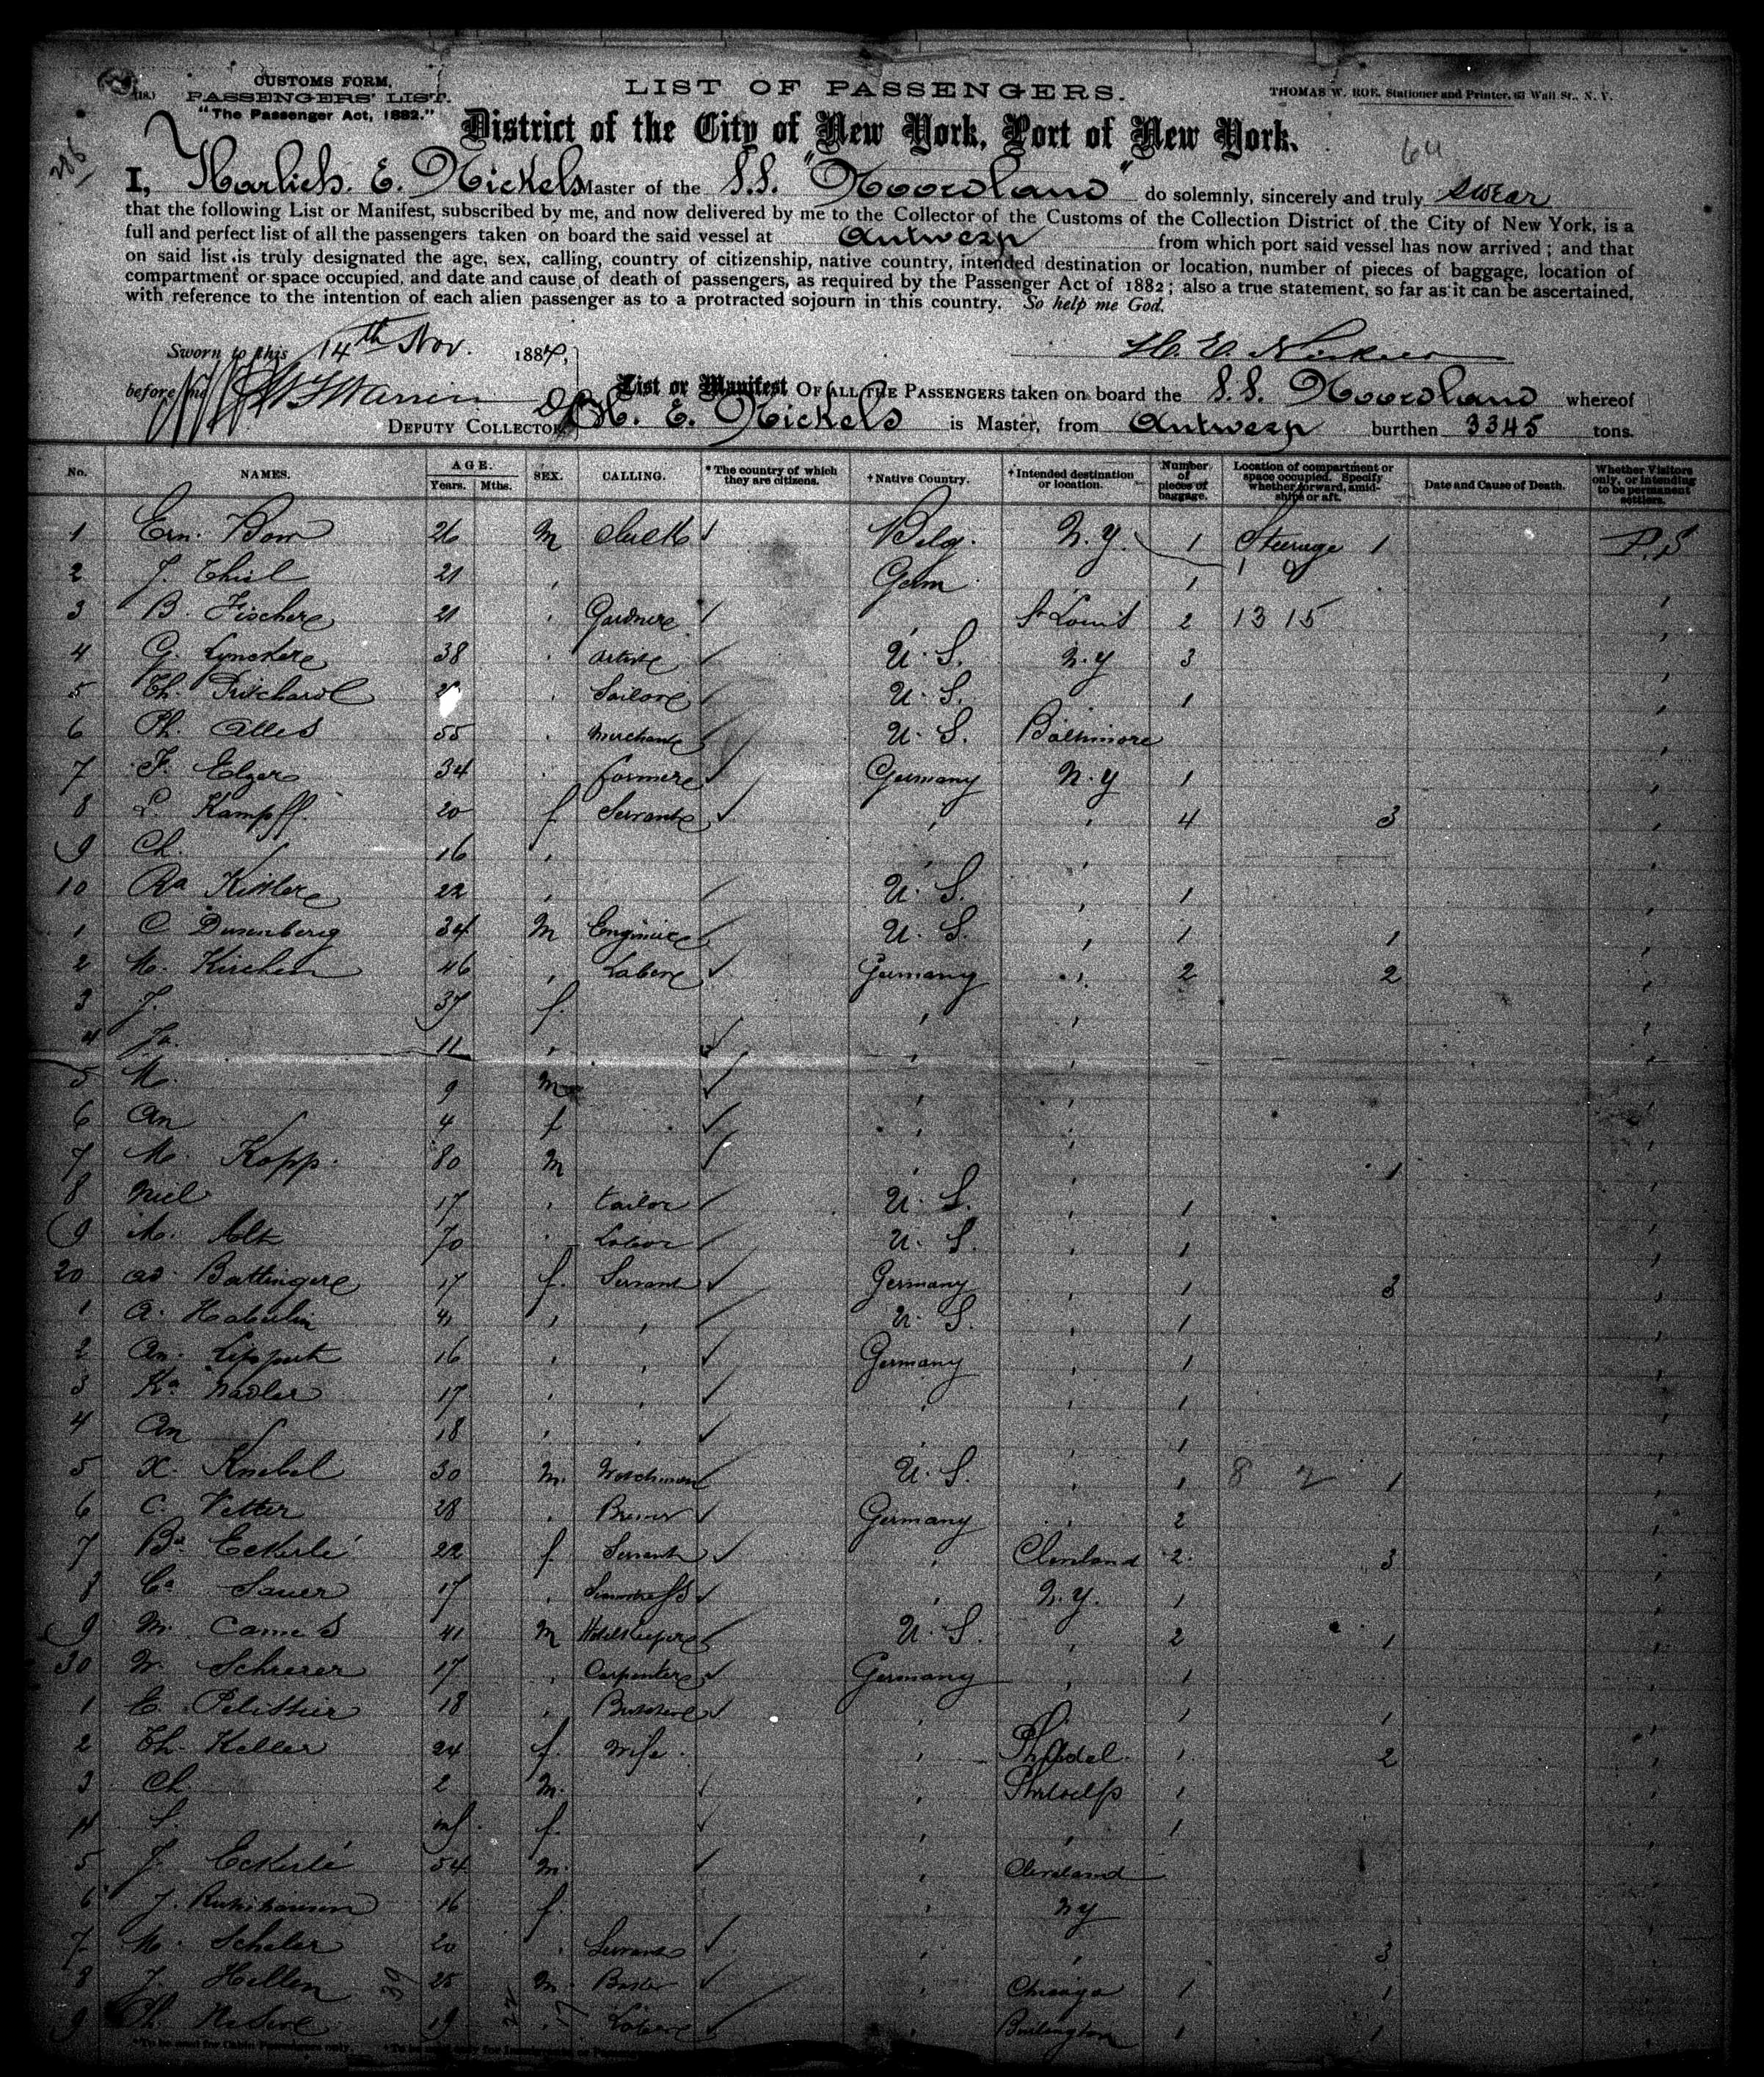 CUSTOMS FORM,
PASSENGERS' LIST.
"The Passenger Act, 1882."
LIST OF PASSENGERS.
THOMAS W. ROE, Stationer and Printer, 63 Wall St., N. Y.
District of the City of New York, Port of New York.
I, E. Nickels Master of the S.S. "Noordland" do solemnly, sincerely and truly swear
that the following List or Manifest, subscribed by me, and now delivered by me to the Collector of the Customs of the Collection District of the City of New York, is a
full and perfect list of all the passengers taken on board the said vessel at Antwerp from which port said vessel has now arrived; and that
on said list is truly designated the age, sex, calling, country of citizenship, native country, intended destination or location, number of pieces of baggage, location of
compartment or space occupied, and date and cause of death of passengers, as required by the Passenger Act of 1882; also a true statement, so far as it can be ascertained,
with reference to the intention of each alien passenger as to a protracted sojourn in this country. So help me God.
Sworn to this 14th Nov. 1884,
before me
List or Manifest OF ALL THE PASSENGERS taken on board the S.S. Noordland whereof
DEPUTY COLLECTOR. H. E. Nickels is Master, from Antwerp burthen 3345 tons.
No. NAMES. AGE. Years. Mths. SEX. CALLING. * The country of which they are citizens. † Native Country. † Intended destination or location. Number of pieces of baggage. Location of compartment or space occupied. Specify whether forward, amidships or aft. Date and Cause of Death. Whether Visitors only, or intending to be permanent settlers.
1 Ern. 26 M Belg. N.Y. 1 Steerage 1 P.S
2 J. Thiel 21 Germ 1
3 B. Fischer 21 Gardner St Louis 2 13 15
4 G. 38 Artist U. S. N.Y 3
5 Th. Pritchard Sailor U. S. 1
6 Ph. Alles 55 Merchant U. S. Baltimore
7 F. Elger 34 Farmer Germany N.Y 1
8 L. Kampff. 20 f Servant 4 3
9 Ch. 16
10 22 U. S. 1
1 C Dusenberg 34 M Engineer U. S. 1 1
2 M. Kirchen 46 Labor Germany 2 2
3 J. 37 f.
4 Ja. 11
5 M. 9 M
6 An 4 f
7 M. Kopp. 80 M 1
8 Niel 17 tailor U. S. 1
9 M. 70 Labor U. S. 1
20 Ad. Battinger 17 f. Servant Germany 1 3
1 A. U. S. 1
2 An. 16 Germany 1
3 Ka Nadler 17 1
4 An 18 1
5 X. Knebel 30 M. U. S. 1 8 1
6 C. Vetter 28 Brewer Germany 2
7 Ba Eckerlé 22 f. Servant Cleveland 2 3
8 Ca Sauer 17 Seamstress N.Y. 1
9 M. Cames 41 M Hotelkeeper U. S. 2 1
30 W. Scherer 17 Carpenter Germany 1
1 E. Pelissier 18 1 1
2 Th. Keller 24 f. Wife. Philadel. 1 2
3 Ch 2 M. Philadelp 1
4 S. inf. f. 1
5 J. Eckerlé 54 M. Cleveland
6 J. 16 f. N Y
7 M. Scheler 20 Servant 3
8 J. Hellen 25 M. Chicago 1 1
9 19 Labor Burlington 1 1